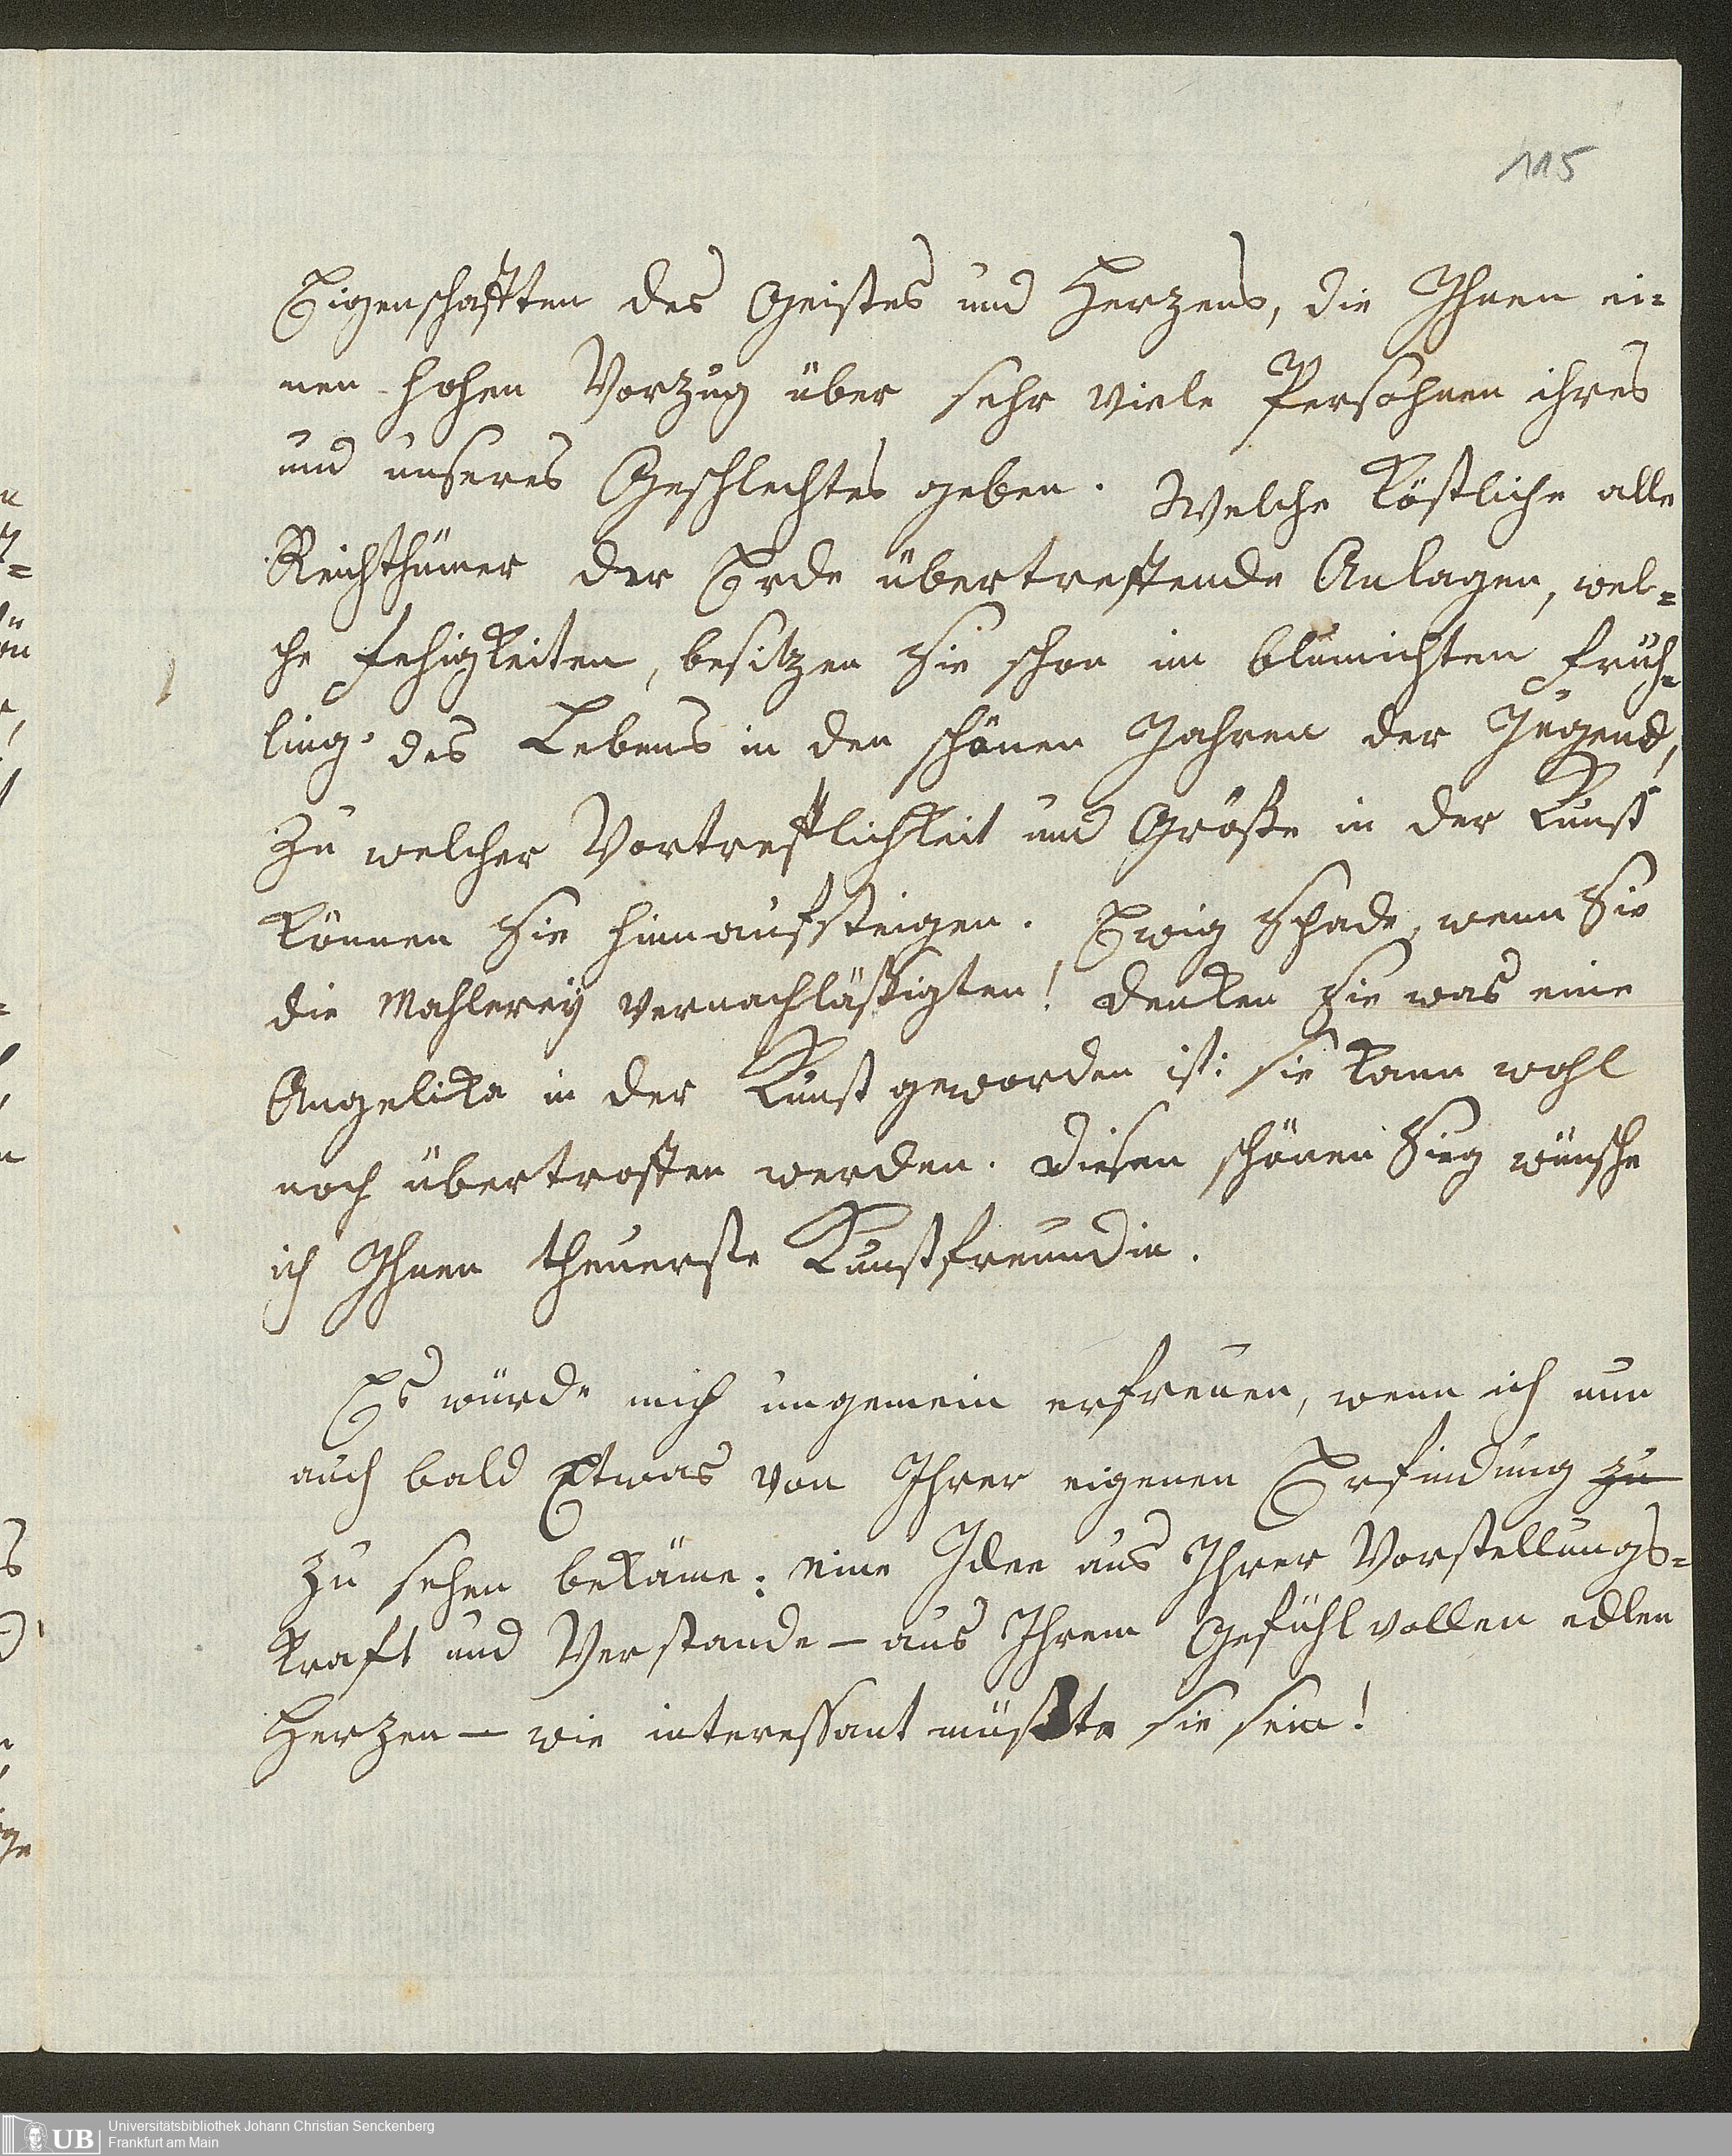 115
Eigenschafften des Geistes und Herzens, die Ihnen ei=
nen hohen Vorzug über sehr viele Persohnen ihres
und unseres Geschlechtes geben. Welche köstliche alle
Reichthümer der Erde übertreffende Anlagen, wel=
che Fehigkeiten, besitzen Sie schon im blumichten Früh=
ling des Lebens in den schönen Jahren der Jugend,
zu welcher Vortrefflichkeit und Größe in der Kunst
können Sie hinnaufsteigen. Ewig Schade, wenn Sie
die Mahlereÿ vernachläßigten! Denken Sie was eine
Angelika in der Kunst geworden ist: sie kann wohl
noch übertroffen werden. Diesen schönen Sieg wünsche
ich Ihnen theuerste Kunstfreundin.
Es würde mich ungemein erfreuen, wenn ich nun
auch bald Etwas von Ihrer eigenen Erfindung zu
zu sehen bekäme: eine Idee aus Ihrer Vorstellungs=
kraft und Verstande — aus Ihrem Gefühlvollen edlen
Herzen — wie interessant müßte sie sein!
UB
Universitätsbibliothek Johann Christian Senckenberg
Frankfurt am Main